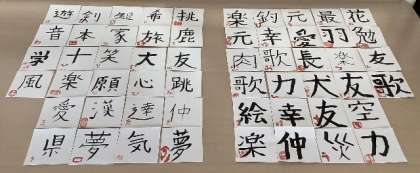 遊 剣 希 挑
音 本 家 旅 鹿
学 十 笑 大 友
風 楽 願 心 跳
愛 漢 達 仲
県 夢 気 夢
楽 釣 元 最 花
元 幸 愛 羽 勉
肉 歌 長 楽 友
歌 力 犬 友 歌
絵 幸 友 空
楽 仲 災 力